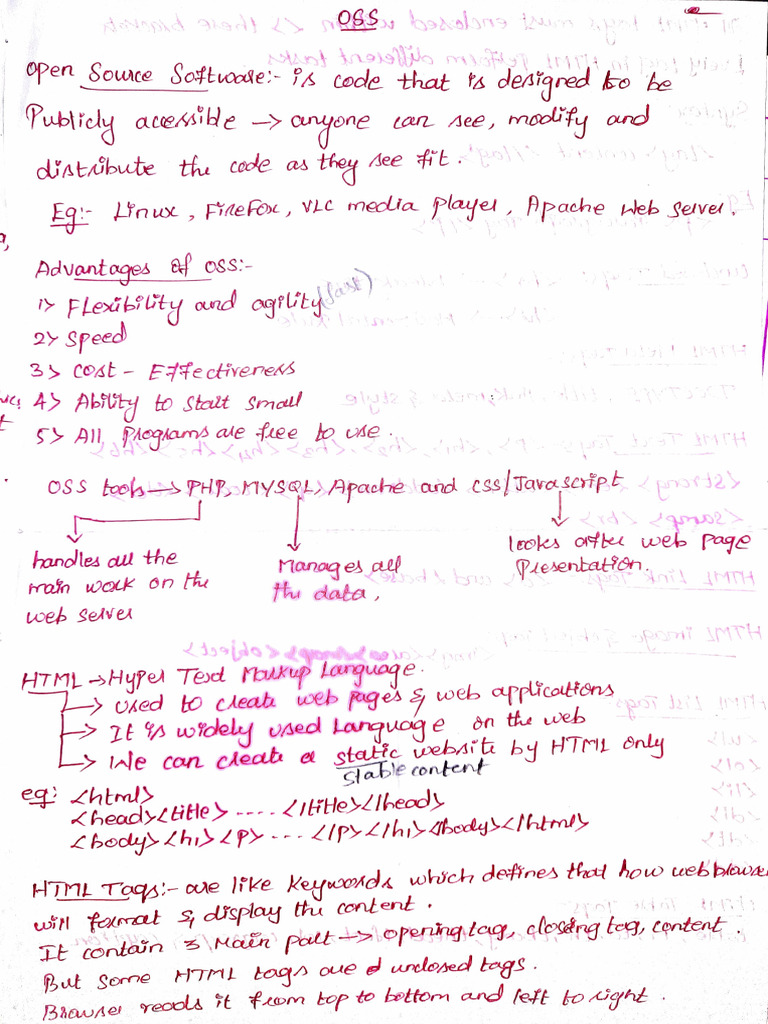 OSS
Open Source Software:- is code that is designed to be
Publicly accessible → anyone can see, modify and
distribute the code as they see fit.
Eg:- Linux, FireFox, VLC media player, Apache Web Server.
Advantages of OSS:-
1> Flexibility and agility (fast)
2> Speed
3> Cost - Effectiveness
4> Ability to start small
5> All programs are free to use.
OSS tools → PHP, MYSQL, Apache and css/Javascript
handles all the
main work on the
web server
Manages all
the data,
looks after web page
Presentation.
HTML → Hyper Text Markup Language.
→ used to create web pages & web applications
→ It is widely used Language on the web
→ We can create a static website by HTML only
stable content
eg: <html>
<head><title> .... </title></head>
<body><h1><p> ... </p></h1></body></html>
HTML Tags:- are like keywords which defines that how web browse
will format & display the content.
It contain 3 Main part → opening tag, closing tag, content.
But some HTML tags are unclosed tags.
Browser reads it from top to bottom and left to right.